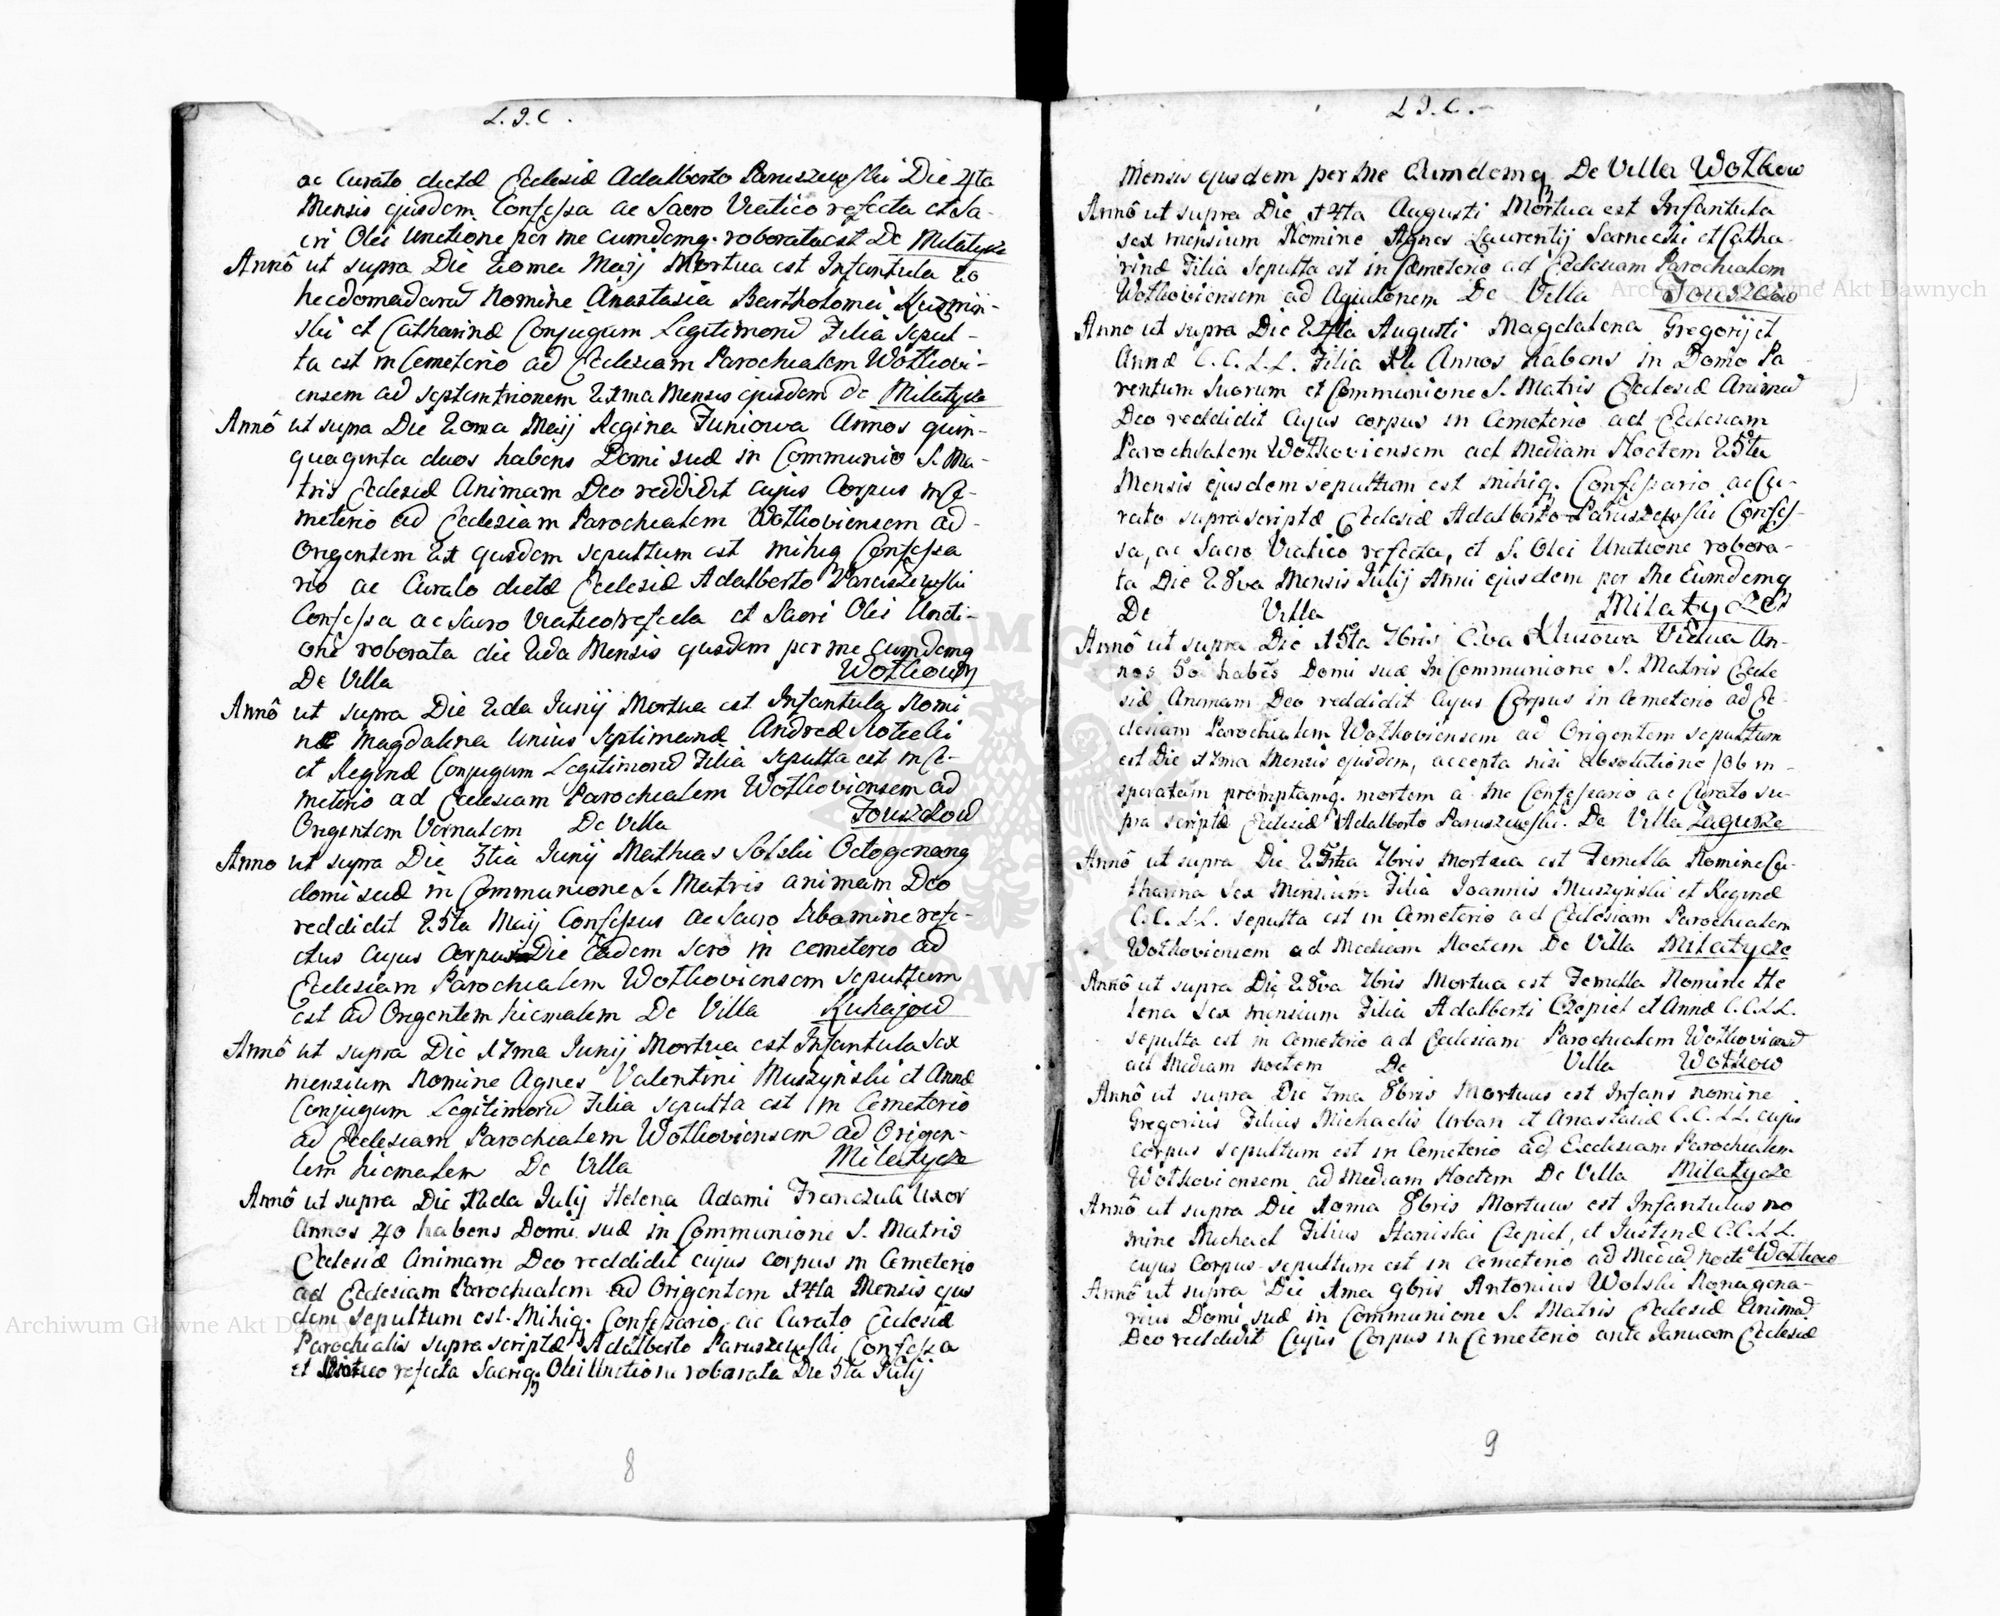 L. J. C.
ac Curato dictæ Ecclesiæ Adalberto Paruszewski Die 4ta
Mensis ejusdem Confessa ac Sacro Viatico refecta et Sa-
cri Olei Unctione per me eumdemq. roborata est De Milatycze
Annô ut supra Die 20ma Maij Mortua est Infantula 20
hecdomadarū Nomine Anastasia Bartholomei Kuzmin-
ski et Catharinæ Conjugum Legitimorū Filia Sepul-
ta est in Cemeterio ad Ecclesiam Parochialem Wołkovi-
ensem ad septemtrionem 21ma Mensis ejusdem de Milatycze
Annô ut supra Die 20ma Maij Regina Funiowa Annos quin-
quaginta duos habens Domi suæ in Communio S. Ma-
tris Ecclesiæ Animam Deo reddidit cujus Corpus in Ce-
meterio ad Ecclesiam Parochialem Wołkoviensem ad
Origentem 21 ejusdem sepultum est mihiq Confessa
rio ac Curato dictæ Ecclesiæ Adalberto Paruszewski
Confessa ac Sacro Viatico refecta et Sacri Olei Uncti-
one roborata die 22da Mensis ejusdem per me eumdemq
De Villa Wołkow
Annô ut supra Die 22da Junij Mortua est Infantula Nomi
næ Magdalena Unius Septimanæ Andreæ Kotecki
et Reginæ Conjugum Legitimorū Filia Sepulta est in Ce-
meterio ad Ecclesiam Parochialem Wołkoviensem ad
Origentem Vernalem De Villa Touszczow
Anno ut supra Die 3tia Junij Mathias Solski Octogenariq
domi suæ in Communione S. Matris animam Deo
reddidit 25ta Maij Confessus ac Sacro Libamine refe-
ctus Cujus Corpus Die Eadem sero in cemeterio ad
Ecclesiam Parochialem Wołkoviensem sepultum
est ad Origentem hiemalem De Villa Kuhajow
Annô ut supra Die 17ma Junij Mortua est Infantula Sex
mensium Nomine Agnes Valentini Muszyński et Annæ
Conjugum Legitimorū Filia sepulta est in Cemeterio
ad Ecclesiam Parochialem Wołkoviensem ad Origen-
tem hiemalem De Villa Milatycze
Annô ut supra Die 12da Julij Helena Adami Franczuk Uxor
Annos 40 habens Domi suæ in Communione S. Matris
Ecclesiæ Animam Deo reddidit cujus corpus in Cemeterio
ad Ecclesiam Parochialem ad Origentem 14ta Mensis ejus
dem Sepultum est. Mihiq. Confessario, ac Curato Ecclesiæ
Parochialis supra scriptæ Adalberto Paruszewski Confessa
et Viatico refecta Sacriq. Olei Unctione roborata Die 5ta Julij
8
L. J. C.
Mensis ejusdem per me Eumdemq De Villa Wołkow
Annô ut supra Die 14ta Augusti Mortua est Infantula
sex mensium Nomine Agnes Laurentij Sarnecki et Catha
rinæ Filia Sepulta est in Cæmeterio ad Ecclesiam Parochialem
Wołkoviensem ad Aquilonem De Villa Touszczow
Anno ut supra Die 24ta Augusti Magdalena Gregorij et
Annæ C. C. L. L. Filia 12 Annos habens in Domo Pa-
rentum Suorum et Communione S. Matris Ecclesiæ Animā
Deo reddidit Cujus corpus in Cemeterio ad Ecclesiam
Parochialem Wołkoviensem ad Mediam Noctem 25ta
Mensis ejusdem sepultum est mihiq. Confessario ac Cu-
rato supra scriptæ Ecclesiæ Adalberto Paruszewski Confes-
sa, ac Sacro Viatico refecta, et S. Olei Unctione robora-
ta Die 28va Mensis Julij Anni ejusdem per me Eumdemq
De Villa Milatycze
Annô ut supra Die 15ta 7bris Eva Klusowa Vidua An-
nos 50 habēs Domi suæ In Communione S. Matris Eccle
siæ Animam Deo reddidit Cujus Corpus in Cemeterio ad Ec-
clesiam Parochialem Wołkoviensem ad Origentem sepultum
est Die 17ma Mensis ejusdem, accepta nisi absolutione /ob in-
speratam promptamq. mortem a me Confessario ac Curato su-
pra scriptæ Ecclesiæ Adalberto Paruszewski. De Villa Zagurze
Annô ut supra Die 25ta 7bris Mortua est Femella Nomine Ca-
tharina Sex Mensium Filia Joannis Muszyński et Reginæ
C. C. L. L. sepulta est in Cemeterio ad Ecclesiam Parochialem
Wołkoviensem ad Mediam Noctem De Villa Milatycze
Annô ut supra Die 28va 7bris Mortua est Femella Nomine He
lena Sex mensium Filia Adalberti Czepiel et Annæ C. C. L. L.
sepulta est in Cemeterio ad Ecclesiam Parochialem Wołkoviensē
ad Mediam noctem De Villa Wołkow
Annô ut supra Die 7ma 8bris Mortuus est Infans nomine
Gregorius Filius Michaelis Urban et Anastasiæ C. C. L. L. cujus
corpus sepultum est in Cemeterio ad Ecclesiam Parochialem
Wołkoviensem ad Mediam Noctem De Villa Milatycze
Annô ut supra Die 10ma 8bris Mortuus est Infantulus no
mine Michael Filius Stanislai Czepiel, et Justinæ C. C. L. L.
cujus Corpus sepultum est in cemeterio ad Mediā Noctē Wołkow
Annô ut supra Die 1ma 9bris Antonius Wolski Nonagena-
rius Domi suæ in Communione S. Matris Ecclesiæ Animā
Deo reddidit Cujus Corpus in Cemeterio ante Januam Ecclesiæ
9
Archiwum Główne Akt Dawnych
Archiwum Główne Akt Dawnych